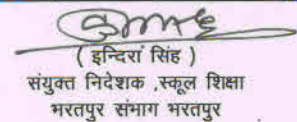 ( इन्दिरा सिंह )
संयुक्त निदेशक ,स्कूल शिक्षा
भरतपुर संभाग भरतपुर